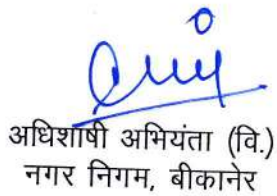 अधिशाषी अभियंता (वि.)
नगर निगम, बीकानेर